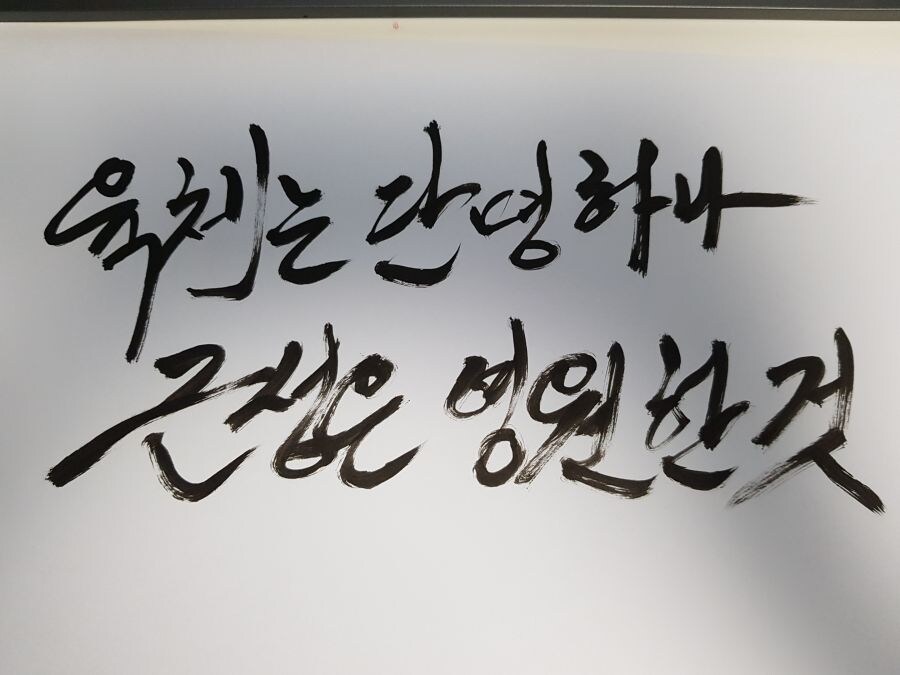 육체는 단명하나
근성은 영원한 것